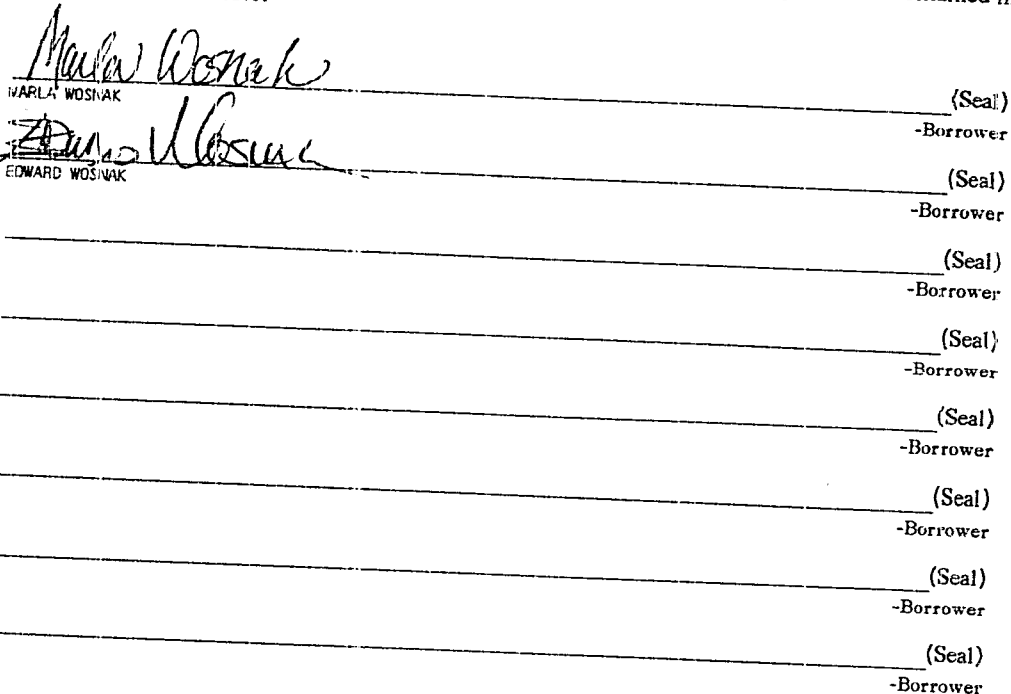 Marla Wosnak (Seal)
MARLA WOSNAK -Borrower
(Seal)
EDWARD WOSNAK -Borrower
(Seal)
-Borrower
(Seal)
-Borrower
(Seal)
-Borrower
(Seal)
-Borrower
(Seal)
-Borrower
(Seal)
-Borrower